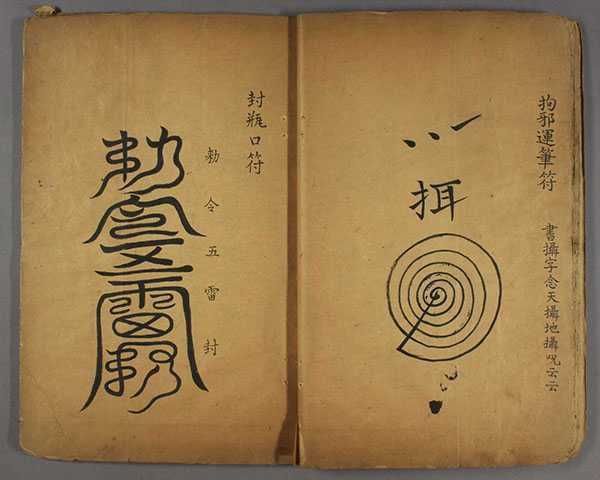 拘邪運筆符
書攝字念天攝地攝呪云云
挕
封瓶口符
勅令五雷封